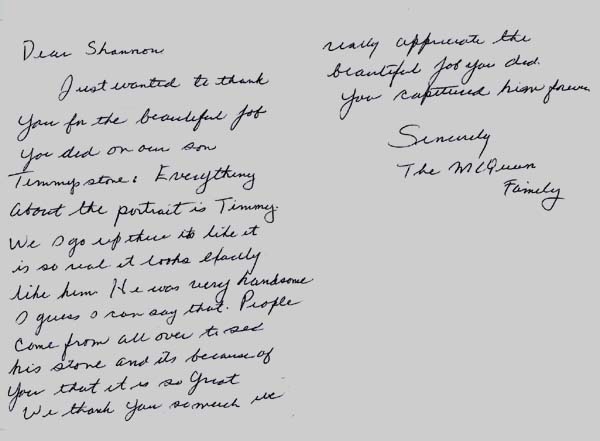 Dear Shannon
Just wanted to thank
You for the beautiful job
you did on our son
Timmys stone. Everything
about the portrait is Timmy.
We go up there its like it
is so real it looks exactly
like him. He was very handsome
I guess I can say that. People
come from all over to see
his stone and its because of
you that it is so Great
We thank you so much we
really appreciate the
beautiful job you did.
You captured him forever
Sincerely
The McQueen
Family